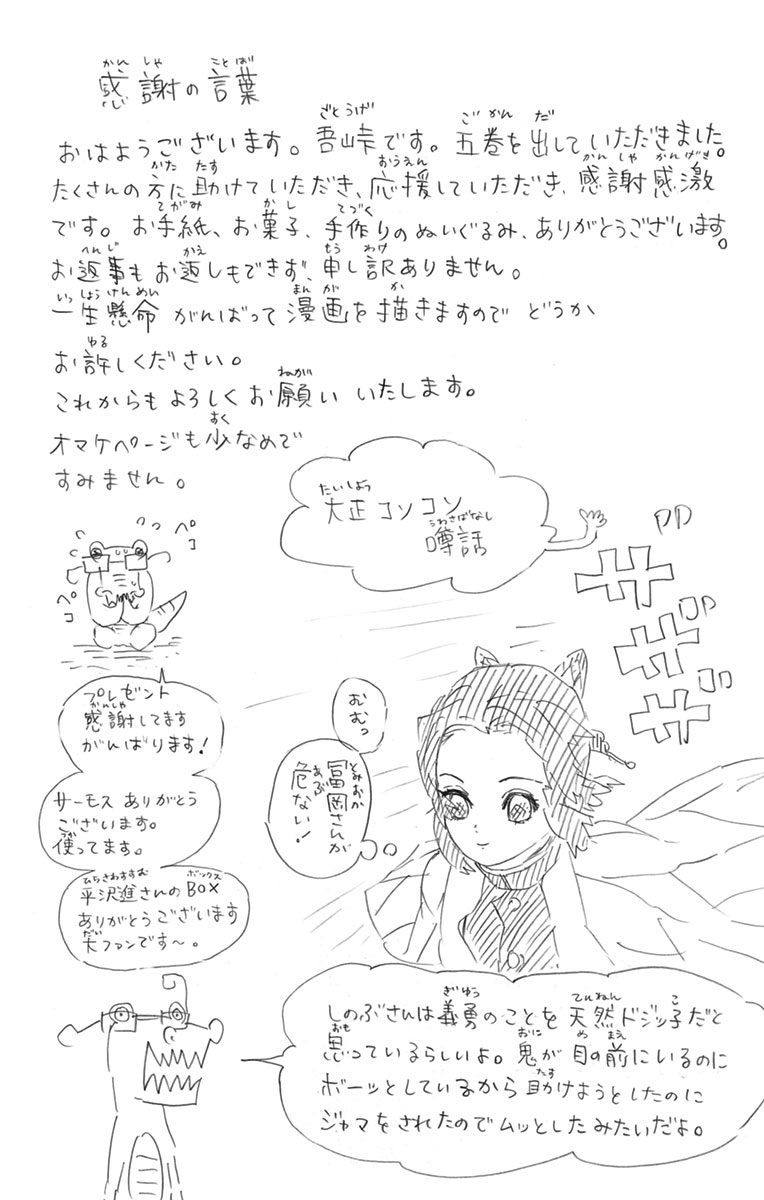 感謝の言葉
おはようございます。吾峠です。五巻を出していただきました。
たくさんの方に助けていただき、応援していただき、感謝感激
です。お手紙、お菓子、手作りのぬいぐるみ、ありがとうございます。
お返事もお返しもできず、申し訳ありません。
一生懸命 がんばって漫画を描きますので どうか
お許しください。
これからもよろしくお願い いたします。
オマケページも少なめで
すみません。
大正コソコソ
噂話
ペコ
ペコ
プレゼント
感謝してます
がんばります!
サーモス ありがとう
ございます。
使ってます。
平沢進さんのBOX
ありがとうございます
大ファンです〜。
サ
サ
サ
むむっ
冨岡さんが
危ない!
しのぶさんは義勇のことを天然ドジッ子だと
思っているらしいよ。鬼が目の前にいるのに
ボーッとしているから助けようとしたのに
ジャマをされたのでムッとしたみたいだよ。